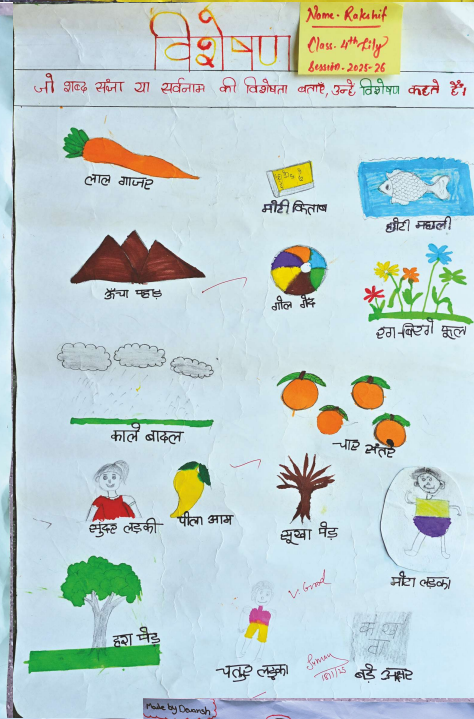 विशेषण
Name. Rakshit
Class. 4th Lily
Session. 2025-26
जो शब्द संज्ञा या सर्वनाम की विशेषता बताए, उन्हे विशेषण कहते हैं।
लाल गाजर
मोटी किताब
छोटी मछली
ऊँचा पहाड़
गोल गेंद
रंग-बिरंगे फूल
काले बादल
चार संतरे
सुंदर लड़की
पीला आम
सूखा पेड़
मोटा लड़का
हरा पेड़
V. Good
चतुर लड़का
18/11/25
बड़े अक्षर
Made by Devansh